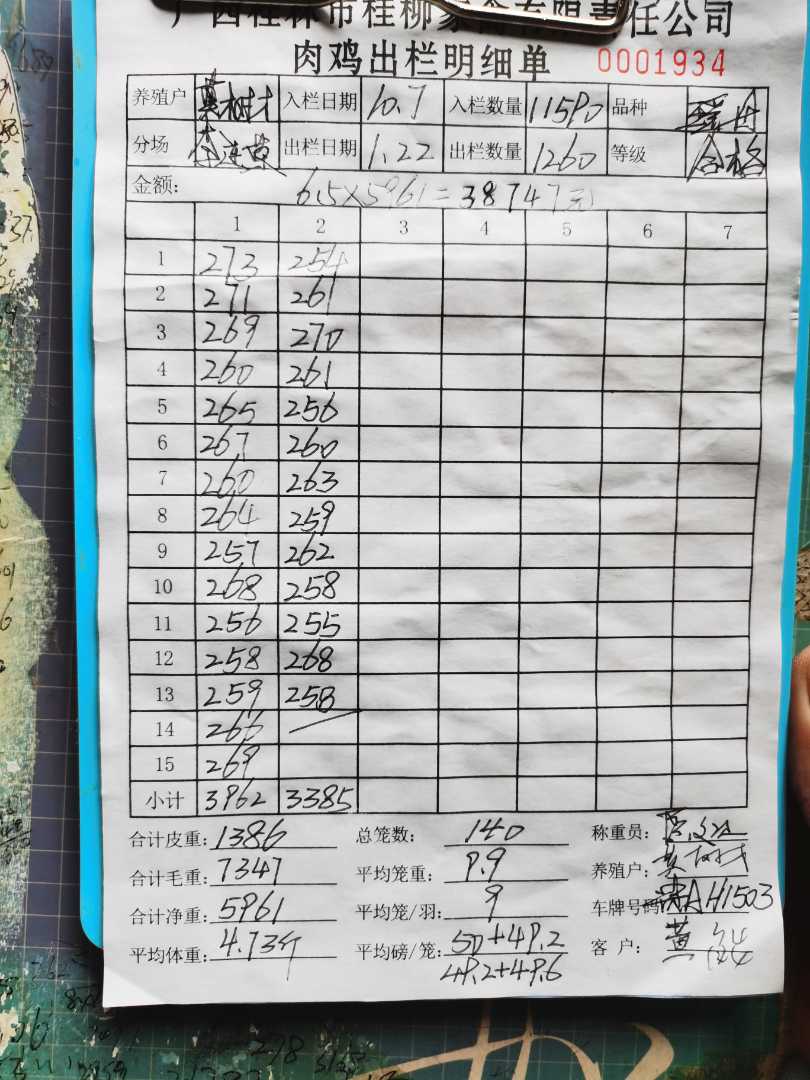 广西桂林市桂柳家禽有限责任公司
肉鸡出栏明细单 0001934
养殖户 入栏日期 10.7 入栏数量 11590 品种
分场 出栏日期 1.22 出栏数量 1260 等级 合格
金额: 6.5×5961=38747元
1 2 3 4 5 6 7
1 273 254
2 271 261
3 269 270
4 260 261
5 265 256
6 267 260
7 260 263
8 264 259
9 257 262
10 268 258
11 256 255
12 258 268
13 259 258
14 266
15 269
小计 3962 3385
合计皮重: 1386 总笼数: 140 称重员:
合计毛重: 7347 平均笼重: 9.9 养殖户:
合计净重: 5961 平均笼/羽: 9 车牌号码 AH1503
平均体重: 4.73斤 平均磅/笼: 50+49.2 客户: 黄
49.2+49.6